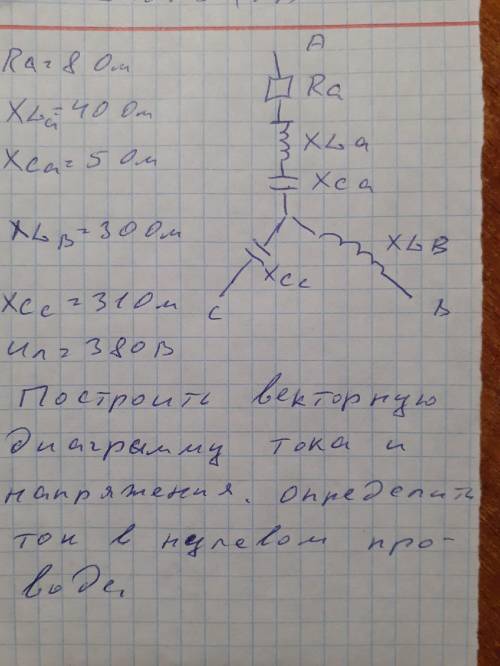 Ra=8 Ом
XLa=40 Ом
Xca=5 Ом
XLB=30 Ом
Xcc=31 Ом
Uл=380В
A
Ra
XLa
Xca
XLB
Xcc
C
B
Построить векторную
диаграмму тока и
напряжения. Определить
ток в нулевом про-
воде